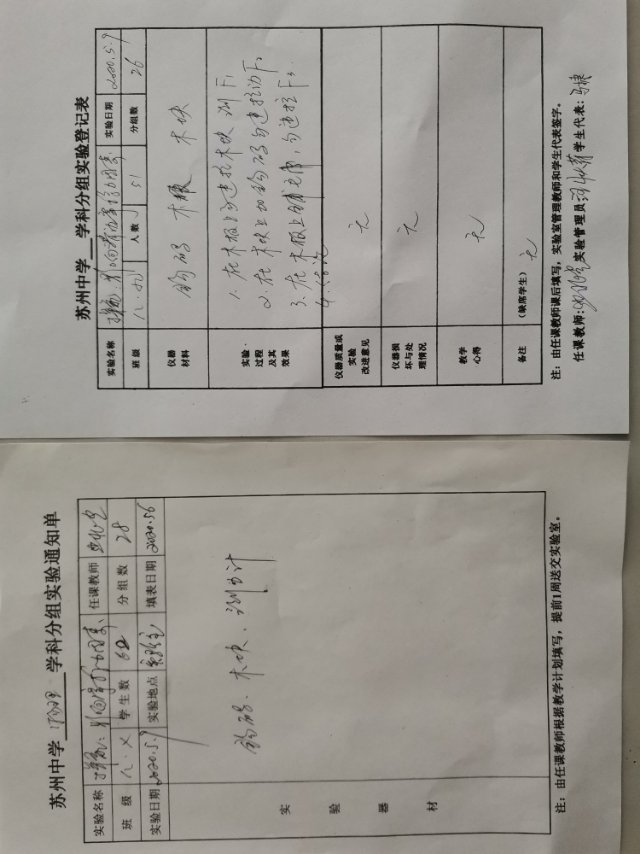 苏州中学 学科分组实验通知单
实验名称 探究:影响滑动摩擦力的因素 任课教师
班 级 八. 学生数 52 分组数 28
实验日期 2020.5.9 实验地点 实验室 填表日期 2020.5.6
实 验 器 材
钩码、木块、测力计
注:由任课教师根据教学计划填写,提前1周送交实验室。
苏州中学 学科分组实验登记表
实验名称 探究:影响 因素 实验日期 2020.5.9
班 级 八. 人 数 51 分组数 26
仪器材料 钩码 木板 木块
实验过程及其效果
1. 在木板上匀速拉木块 测F₁
2. 在木块上加钩码匀速拉动F₂
3. 在木板上铺毛巾,匀速拉F₃
4.
仪器质量或实验改进意见 无
仪器损坏与处理情况 无
教学心得 无
备注 (缺席学生) 无
注:由任课教师课后填写,实验室管理教师和学生代表签字。
任课教师: 实验管理员 学生代表: